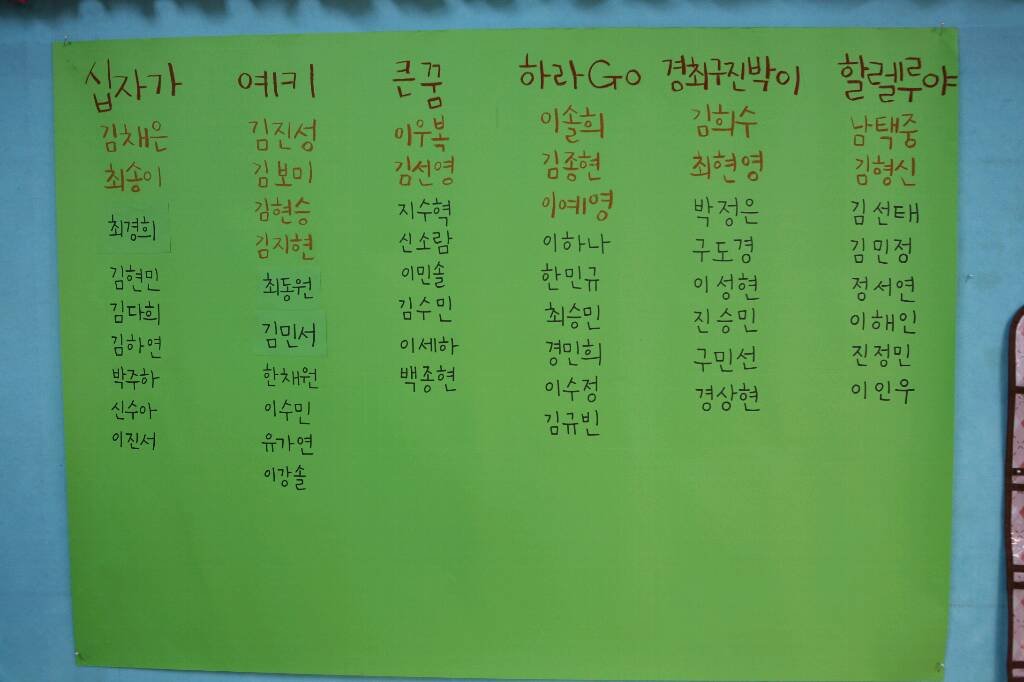 십자가
김채은
최송이
최경희
김현민
김다희
김하연
박주하
신수아
이진서
여키
김진성
김보미
김현승
김지현
최동원
김민서
한채원
이수민
유가연
이강솔
큰꿈
이우복
김선영
지수혁
신소람
이민솔
김수민
이세하
백종현
하라Go
이솔희
김종현
이예영
이하나
한민규
최승민
경민희
이수정
김규빈
경최구진박이
김희수
최현영
박정은
구도경
이성현
진승민
구민선
경상현
할렐루야
남택중
김형신
김선태
김민정
정서연
이해인
진정민
이인우